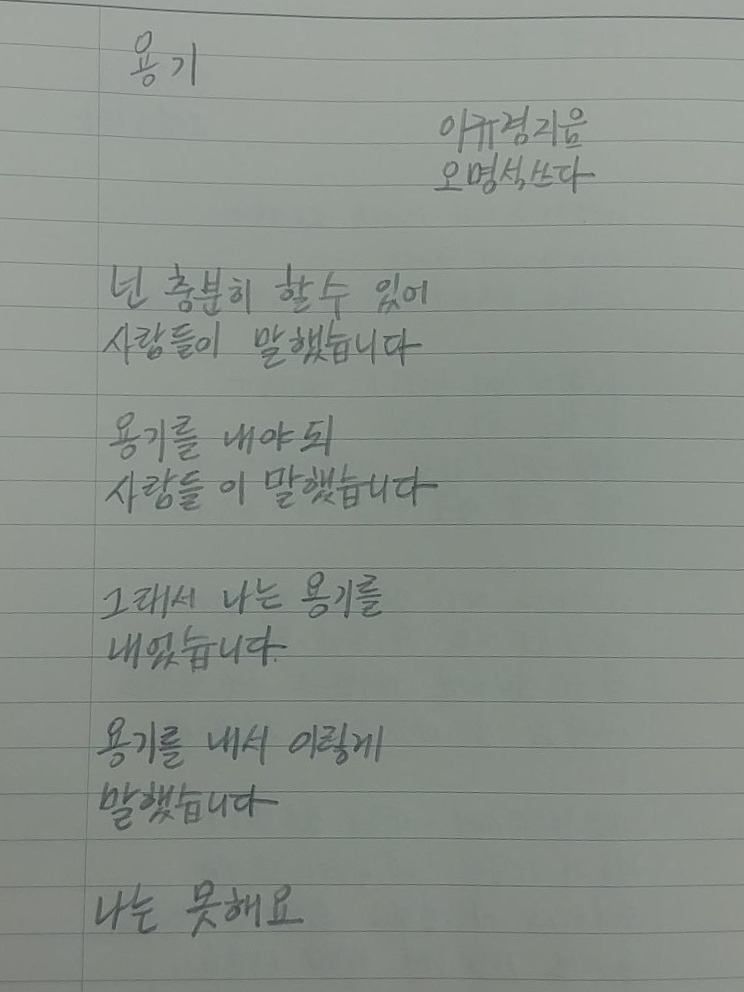 용기
이규경지음
오명석쓰다
넌 충분히 할수 있어
사람들이 말했습니다
용기를 내야 되
사람들 이 말했습니다
그래서 나는 용기를
내었습니다.
용기를 내서 이렇게
말했습니다
나는 못해요